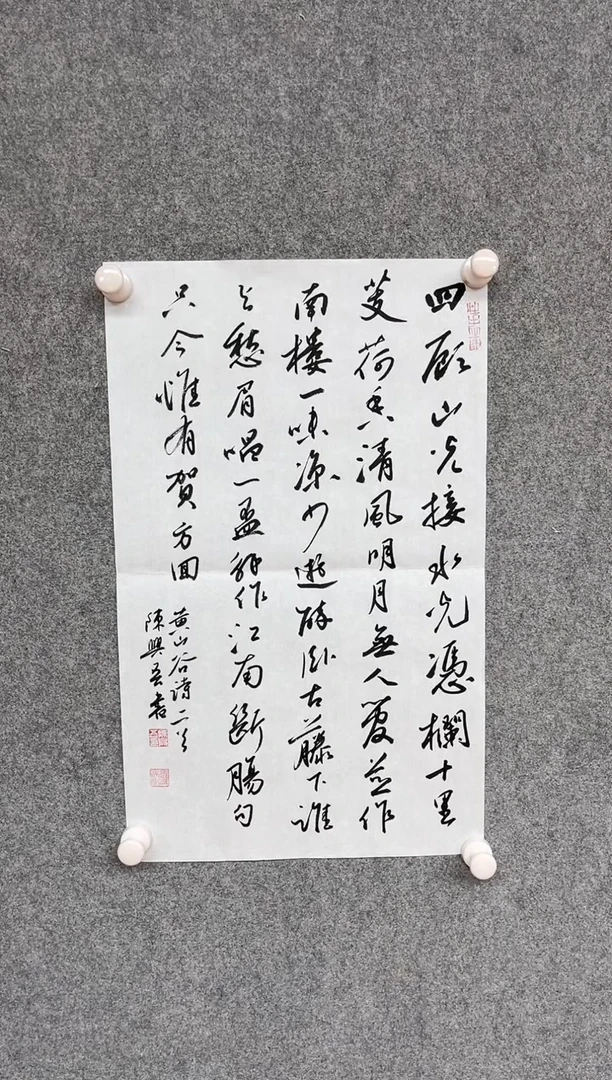 四顧山光接水光憑欄十里
芰荷香清風明月無人管並作
南樓一味凉少遊醉卧古藤下誰
与愁眉唱一盃解作江南斷腸句
只今惟有賀方回
黄山谷詩二首
陳興吾書